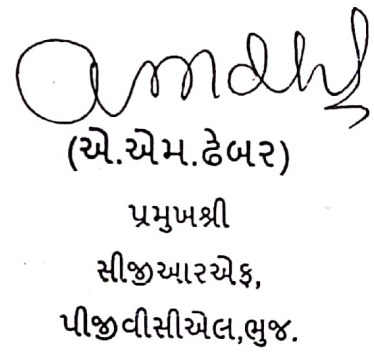 (એ.એમ.ઢેબર)
પ્રમુખશ્રી
સીજીઆરએફ,
પીજીવીસીએલ,ભુજ.